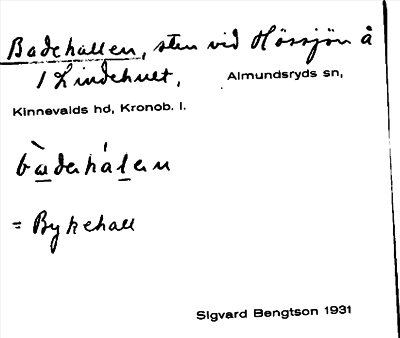 Badehallen, sten vid Hössjön å
1 Lindehult, Almundsryds sn,
Kinnevalds hd, Kronob. l.
bàdehálen
= Bykehall
Sigvard Bengtson 1931